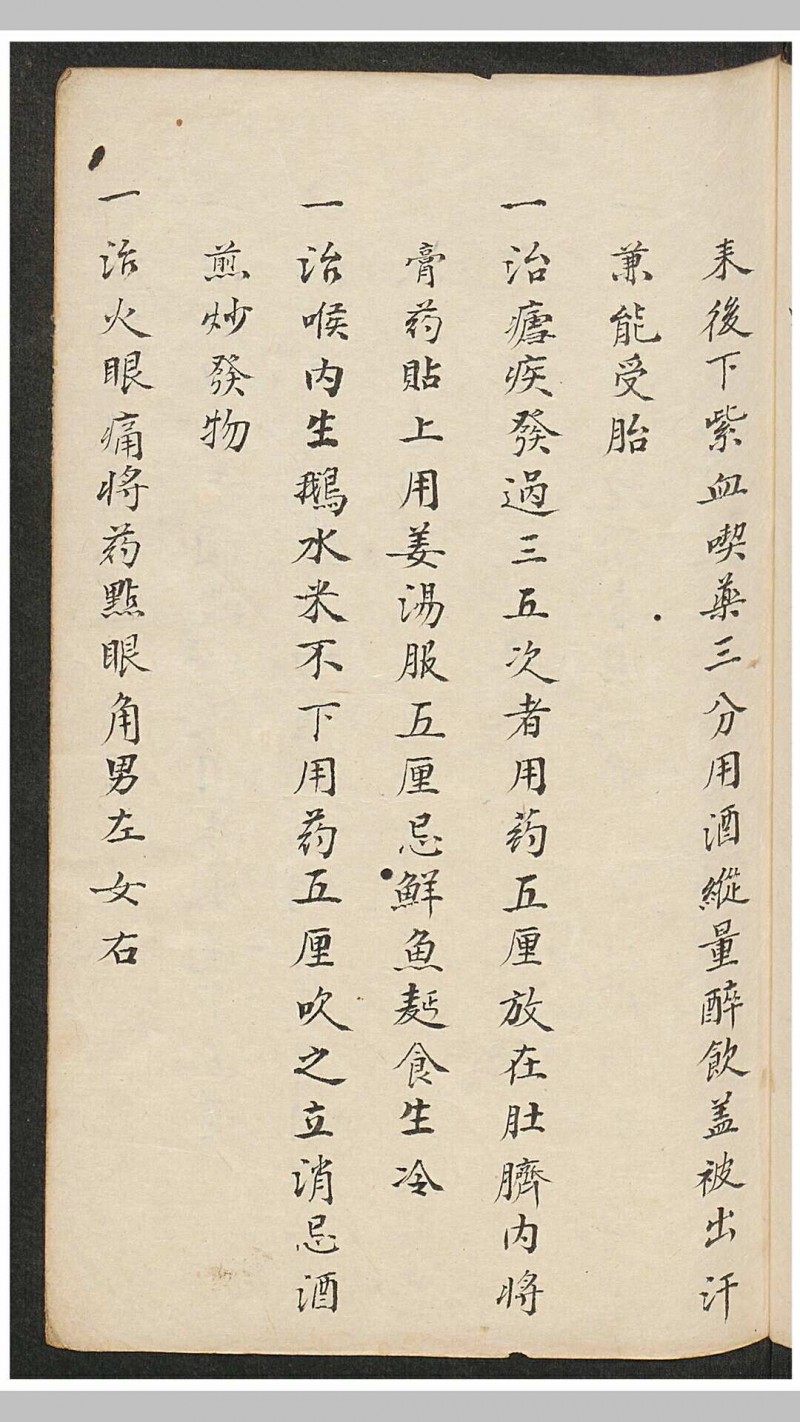 来後下紫血喫藥三分用酒縱量醉飲盖被出汗
兼能受胎
一治瘧疾發過三五次者用药五厘放在肚臍内将
膏药貼上用姜湯服五厘忌鮮魚麪食生冷
一治喉内生鵝水米不下用药五厘吹之立消忌酒
煎炒發物
一治火眼痛将药點眼角男左女右